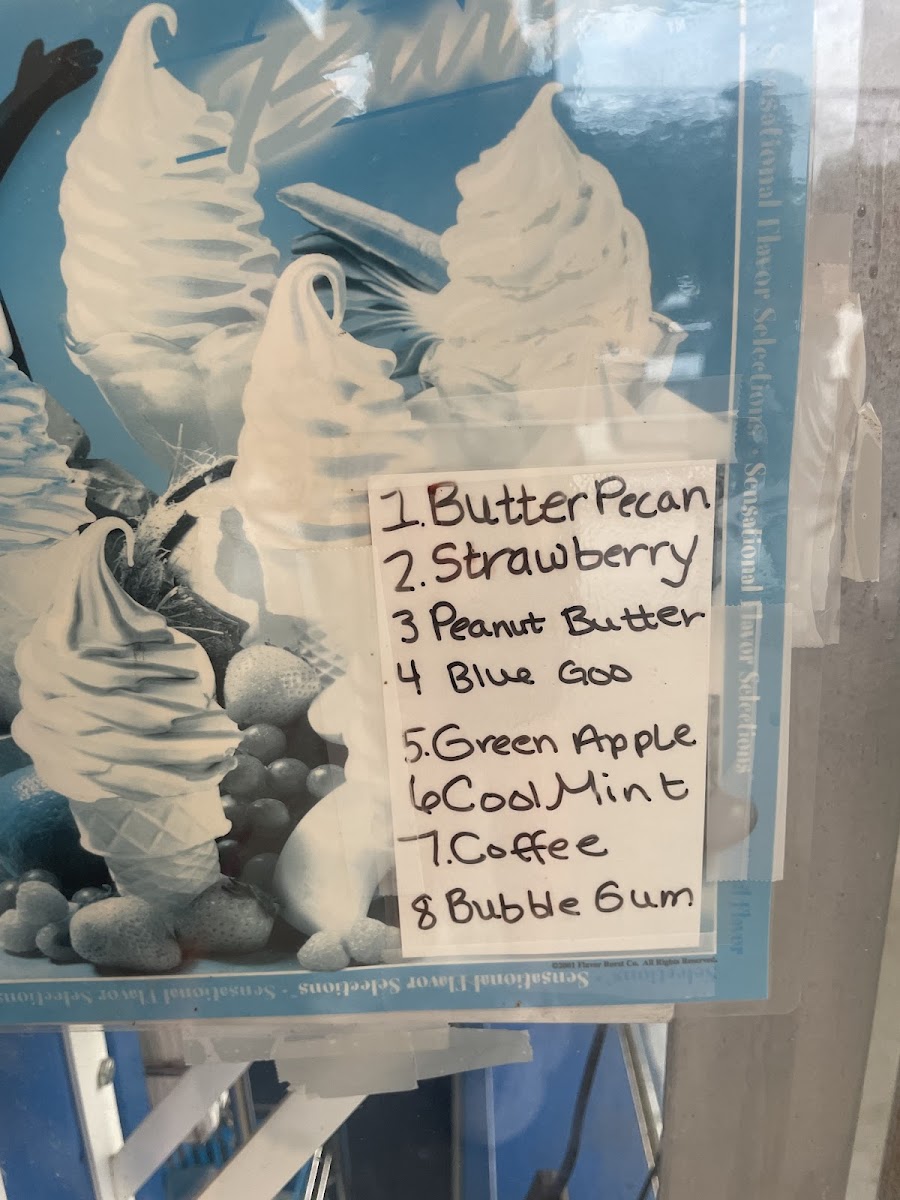 1. Butter Pecan
2. Strawberry
3 Peanut Butter
4 Blue Goo
5. Green Apple
6 Cool Mint
7. Coffee
8 Bubble Gum
©2001 Flavor Burst Co. All Rights Reserved.
Sensational Flavor Selections · Sensational Flavor Selections
Sensational Flavor Selections · Sensational Flavor Selections